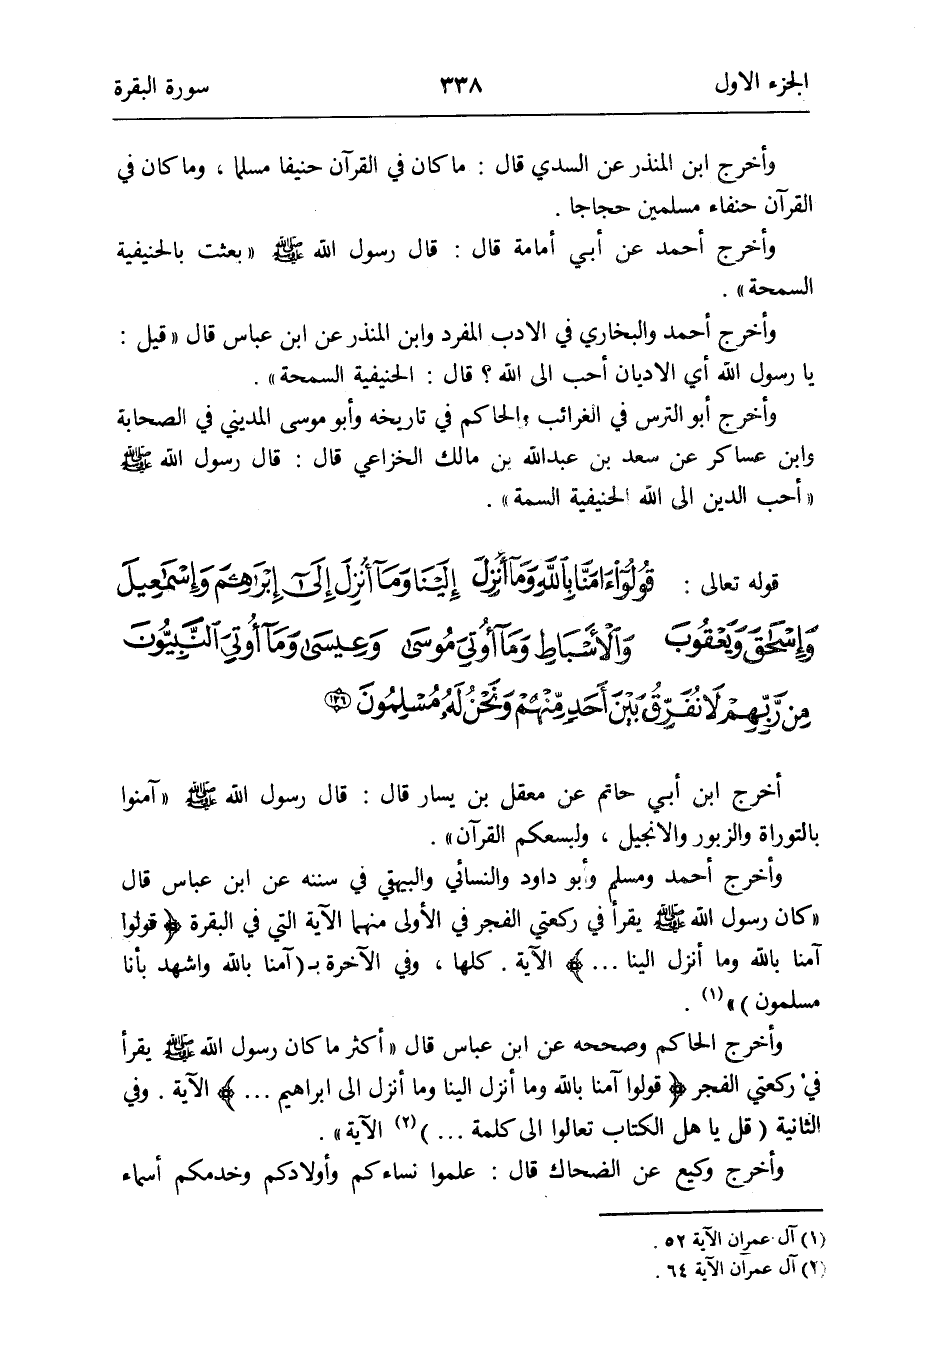 الجزء الاول ٣٣٨ سورة البقرة
وأخرج ابن المنذر عن السدي قال : ما كان في القرآن حنيفا مسلما ، وما كان في
القرآن حنفاء مسلمين حجاجا .
وأخرج أحمد عن أبي أمامة قال : قال رسول الله ﷺ « بعثت بالحنيفية
السمحة » .
وأخرج أحمد والبخاري في الادب المفرد وابن المنذر عن ابن عباس قال « قيل :
يا رسول الله أي الاديان أحب الى الله ؟ قال : الحنيفية السمحة » .
وأخرج أبو الترس في الغرائب والحاكم في تاريخه وأبو موسى المديني في الصحابة
وابن عساكر عن سعد بن عبدالله بن مالك الخزاعي قال : قال رسول الله ﷺ
« أحب الدين الى الله الحنيفية السمة » .
قوله تعالى : قُولُوٓا۟ ءَامَنَّا بِٱللَّهِ وَمَآ أُنزِلَ إِلَيْنَا وَمَآ أُنزِلَ إِلَىٰٓ إِبْرَٰهِۦمَ وَإِسْمَٰعِيلَ
وَإِسْحَٰقَ وَيَعْقُوبَ وَٱلْأَسْبَاطِ وَمَآ أُوتِيَ مُوسَىٰ وَعِيسَىٰ وَمَآ أُوتِيَ ٱلنَّبِيُّونَ
مِن رَّبِّهِمْ لَا نُفَرِّقُ بَيْنَ أَحَدٍ مِّنْهُمْ وَنَحْنُ لَهُۥ مُسْلِمُونَ ١٣٦
أخرج ابن أبي حاتم عن معقل بن يسار قال : قال رسول الله ﷺ « آمنوا
بالتوراة والزبور والانجيل ، وليسعكم القرآن » .
وأخرج أحمد ومسلم وأبو داود والنسائي والبيهقي في سننه عن ابن عباس قال
« كان رسول الله ﷺ يقرأ في ركعتي الفجر في الأولى منهما الآية التي في البقرة ﴿ قولوا
آمنا بالله وما أنزل الينا ... ﴾ الآية . كلها ، وفي الآخرة بـ ( آمنا بالله واشهد بأنا
مسلمون ) » (١) .
وأخرج الحاكم وصححه عن ابن عباس قال « أكثر ما كان رسول الله ﷺ يقرأ
في ركعتي الفجر ﴿ قولوا آمنا بالله وما أنزل الينا وما أنزل الى ابراهيم ... ﴾ الآية . وفي
الثانية ( قل يا هل الكتاب تعالوا الى كلمة ... ) (٢) الآية » .
وأخرج وكيع عن الضحاك قال : علموا نساءكم وأولادكم وخدمكم أسماء
(١) آل عمران الآية ٥٢ .
(٢) آل عمران الآية ٦٤ .